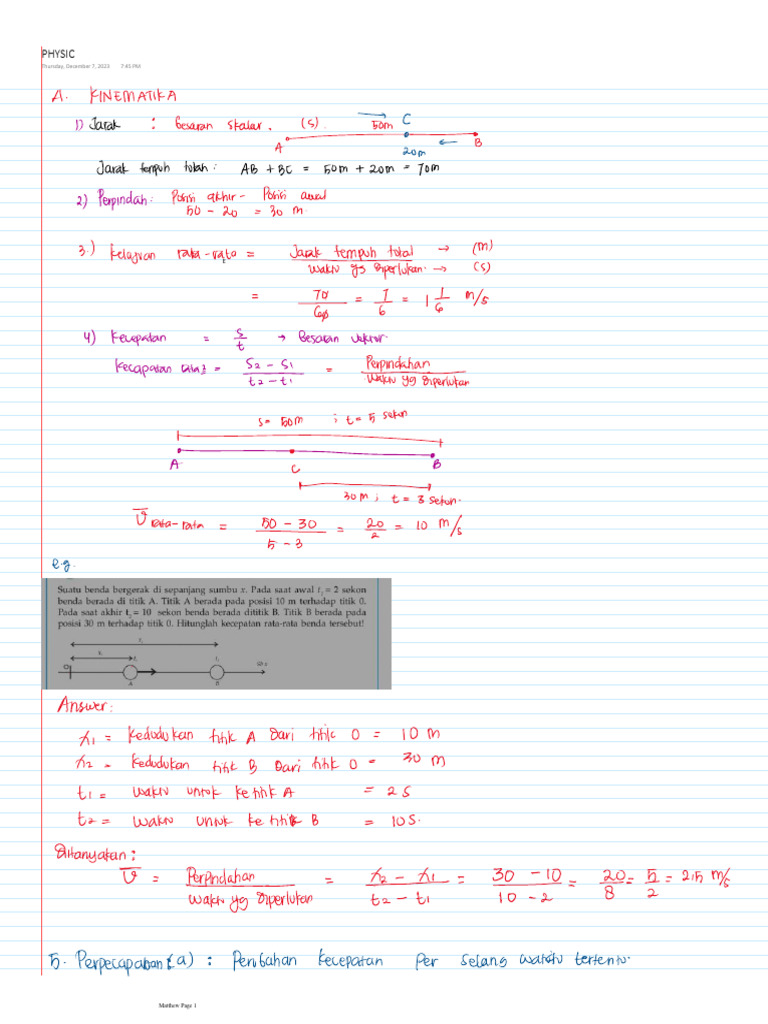 PHYSIC
Thursday, December 7, 2023 7:45 PM
A. KINEMATIKA
1) Jarak : Besaran Skalar. (s). A 50m C B
20m
Jarak tempuh total : AB + BC = 50m + 20m = 70m
2) Perpindah: Posisi akhir - Posisi awal
50 - 20 = 30 m
3.) Kelajuan rata-rata = Jarak tempuh total → (m)
waktu yg diperlukan. → (s)
= 70/60 = 7/6 = 1 1/6 m/s
4) Kecepatan = s/t → Besaran vektor.
Kecepatan rata2 = s2 - s1 / t2 - t1 = Perpindahan / waktu yg diperlukan
s = 50m ; t = 5 sekon
A C B
30m ; t = 3 sekon.
v̅ rata-rata = 50 - 30 / 5 - 3 = 20/2 = 10 m/s
e.g.
Suatu benda bergerak di sepanjang sumbu x. Pada saat awal t1 = 2 sekon
benda berada di titik A. Titik A berada pada posisi 10 m terhadap titik 0.
Pada saat akhir t2 = 10 sekon benda berada dititik B. Titik B berada pada
posisi 30 m terhadap titik 0. Hitunglah kecepatan rata-rata benda tersebut!
A B
Answer:
x1 = Kedudukan titik A dari titik 0 = 10 m
x2 = Kedudukan titik B dari titik 0 = 30 m
t1 = waktu untuk ke titik A = 2 s
t2 = waktu untuk ke titik B = 10 s.
Ditanyakan :
v̅ = Perpindahan / waktu yg diperlukan = x2 - x1 / t2 - t1 = 30 - 10 / 10 - 2 = 20/8 = 5/2 = 2,5 m/s
5. (a) : Perubahan kecepatan per selang waktu tertentu.
Matthew Page 1